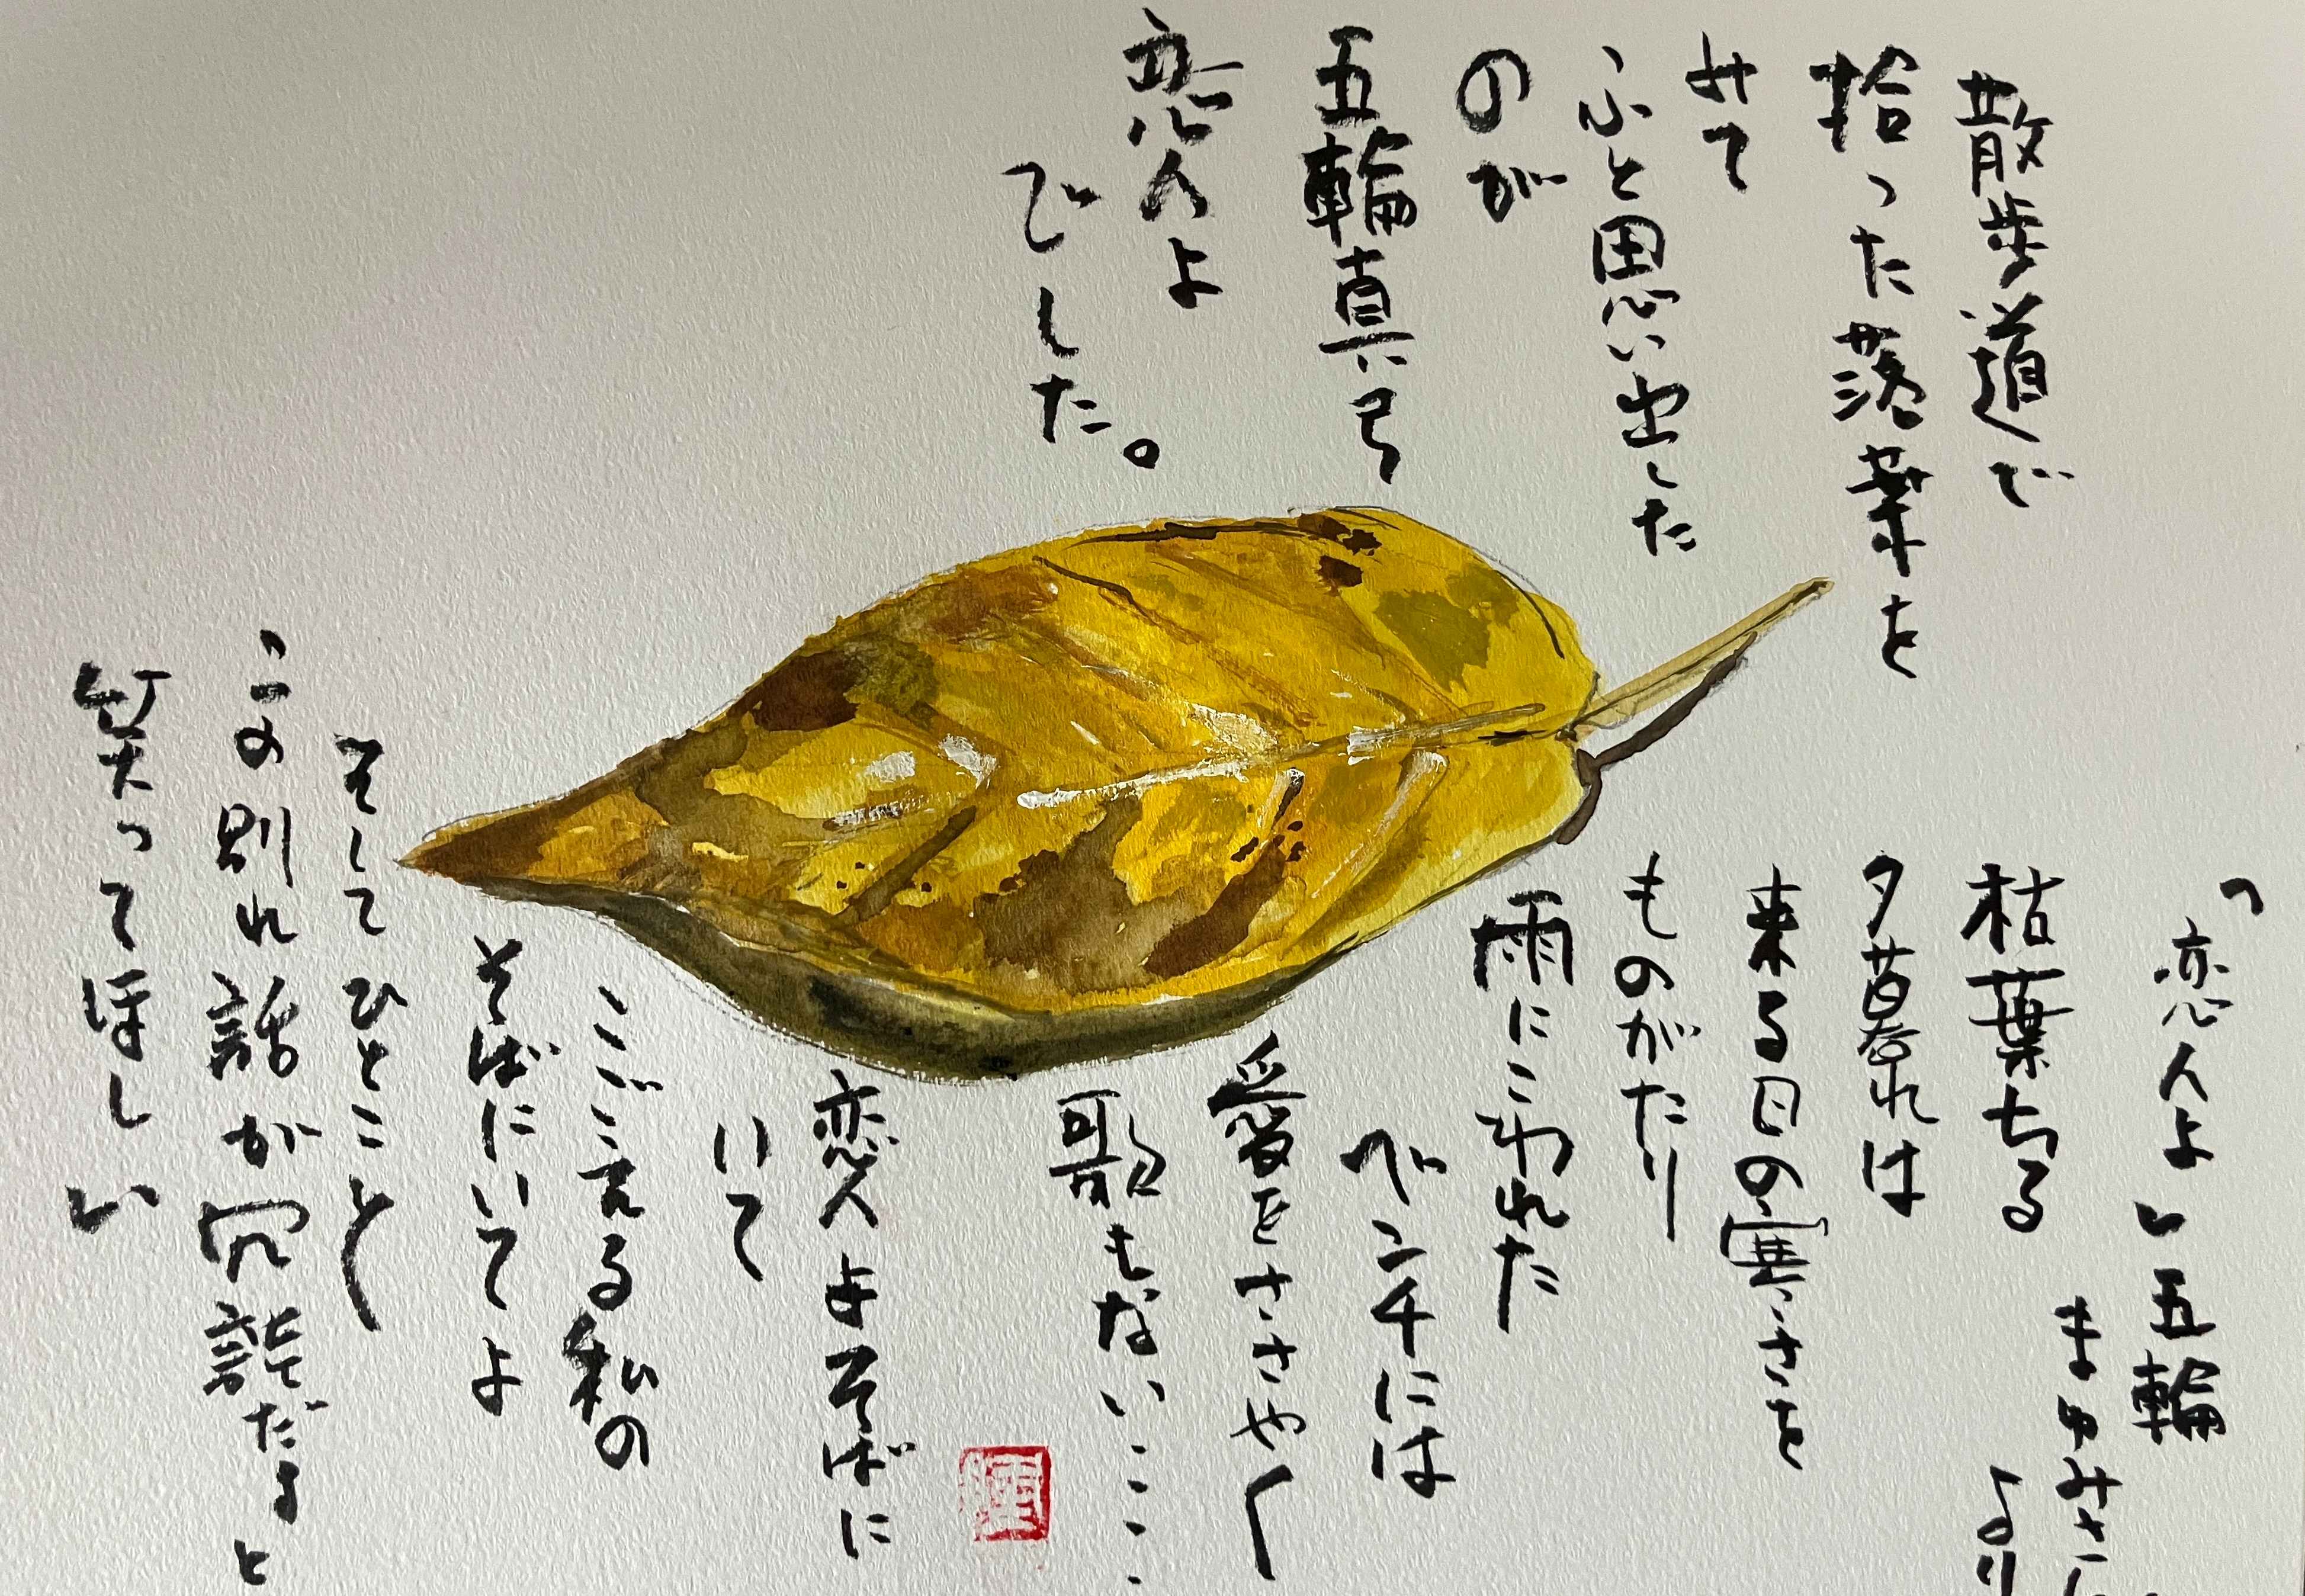 散歩道で
拾った落葉を
みて
ふと思い出した
のが
五輪真弓
恋人よ
でした。
「恋人よ」五輪
まゆみさん
より
枯葉ちる
夕暮れは
来る日の寒さを
ものがたり
雨にこわれた
ベンチには
愛をささやく
歌もない
恋人よそばに
いて
こごえる私の
そばにいてよ
そしてひとこと
この別れ話が冗談だよと
笑ってほしい